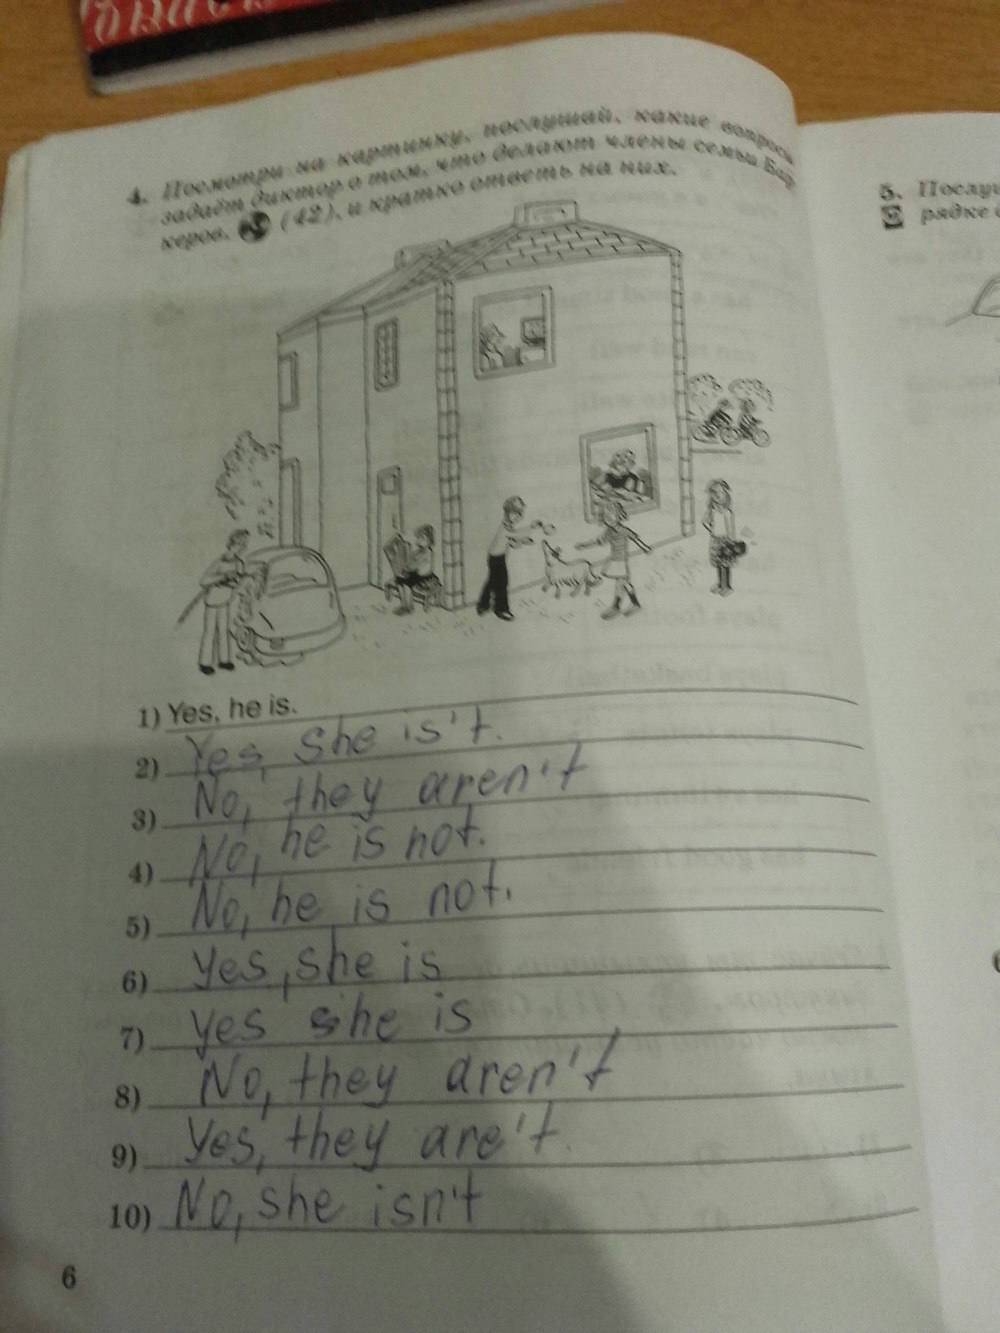 4. Посмотри на картинку, послушай, какие вопросы
задаёт диктор о том, что делают члены семьи Бар-
керов, (42), и кратко ответь на них.
1) Yes, he is.
2) Yes, she is't.
3) No, they aren't
4) No, he is not.
5) No, he is not.
6) Yes, she is
7) yes she is
8) No, they aren't
9) Yes, they are't.
10) No, she isn't
6
5. Послу
рядке